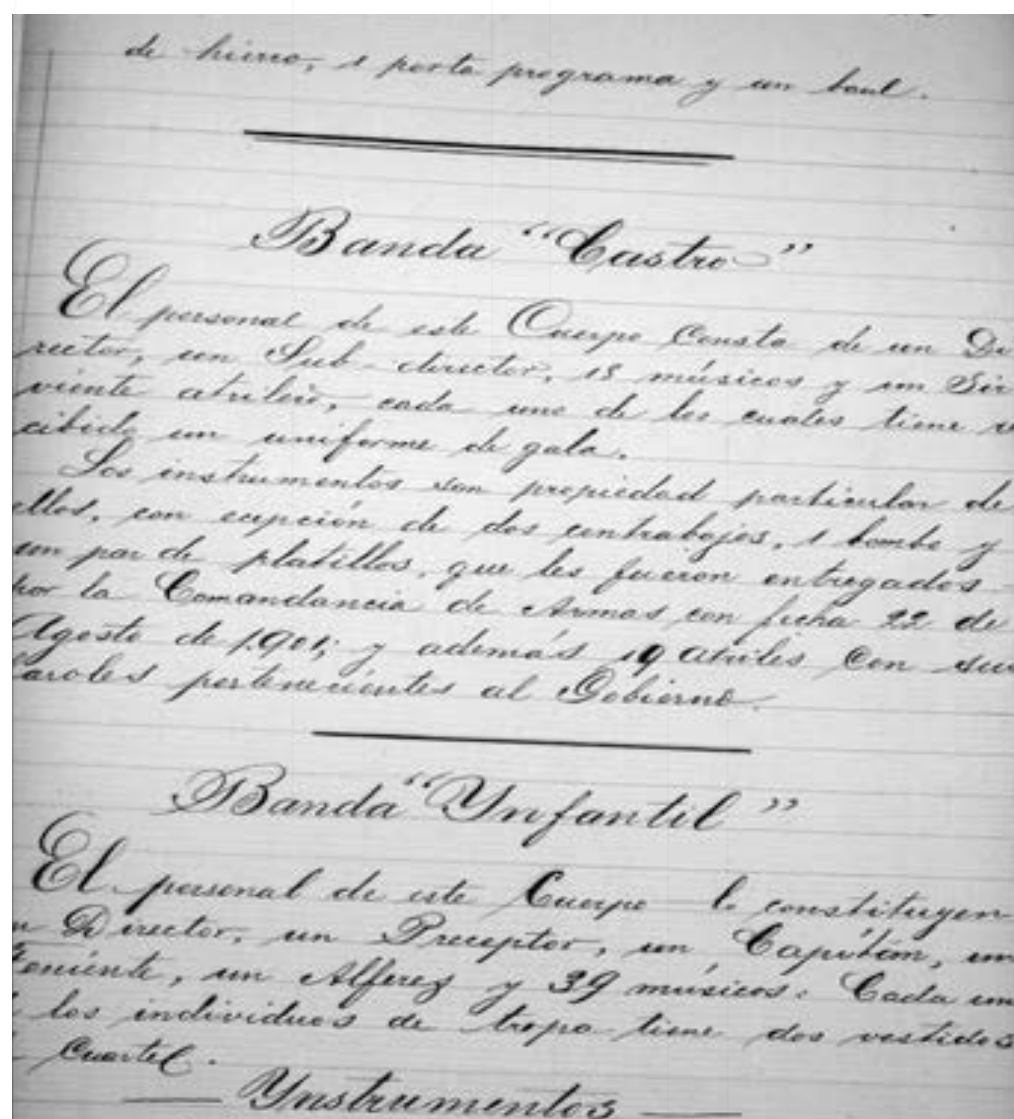 de hierro, 1 porta programa y un baul.
Banda "Castro"
El personal de este Cuerpo Consta de un Di
rector, un Sub-director, 18 músicos y un Sir
viente atrilero, cada uno de los cuales tiene re
cibido un uniforme de gala.
Los instrumentos son propiedad particular de
ellos, con ecpción de dos contrabajos, 1 bombo y
un par de platillos, que les fueron entregados
por la Comandancia de Armas con fecha 22 de
Agosto de 1.901; y además 19 atriles Con sus
faroles pertenecientes al Gobierno.
Banda "Ynfantil"
El personal de este Cuerpo lo constituyen
un Director, un Preceptor, un Capitán, un
Teniente, un Alferez y 39 músicos: Cada uno
de los individuos de tropa tiene dos vestidos
Cuartel.
Ynstrumentos